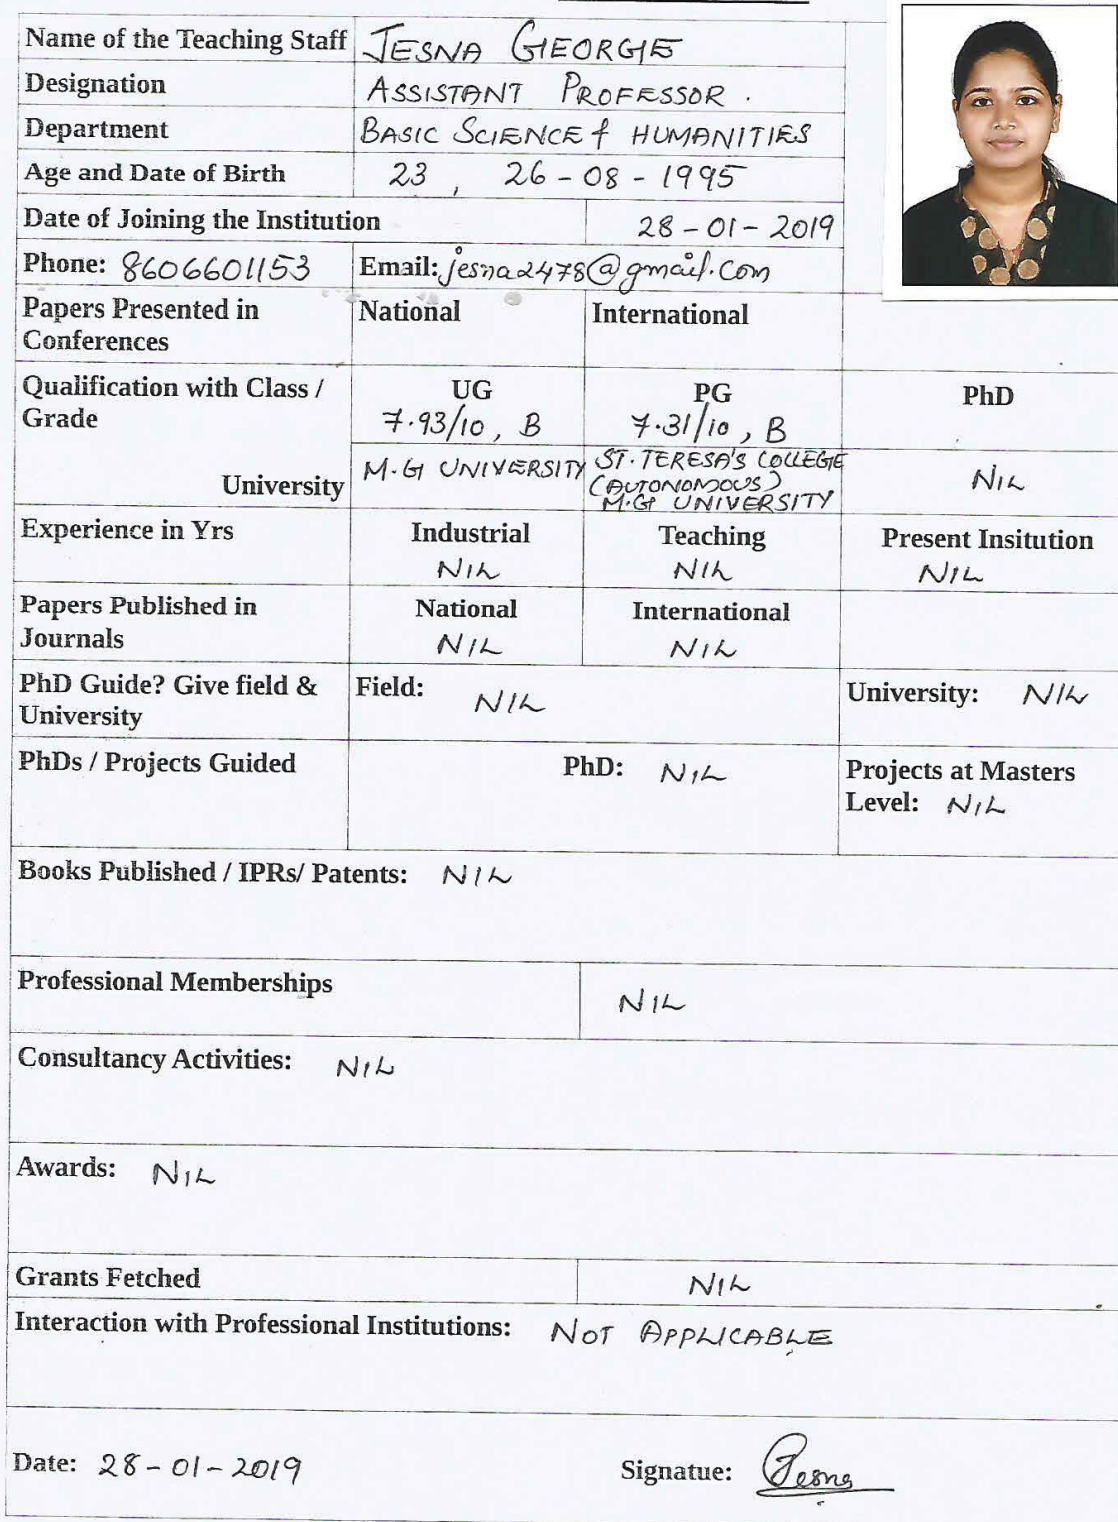 Name of the Teaching Staff JESNA GEORGE
Designation ASSISTANT PROFESSOR.
Department BASIC SCIENCE & HUMANITIES
Age and Date of Birth 23, 26-08-1995
Date of Joining the Institution 28-01-2019
Phone: 8606601153 Email: jesna2478@gmail.com
Papers Presented in Conferences National International
Qualification with Class / Grade UG PG PhD
7.93/10, B 7.31/10, B
University M.G UNIVERSITY ST. TERESA'S COLLEGE (AUTONOMOUS) M.G UNIVERSITY NIL
Experience in Yrs Industrial Teaching Present Insitution
NIL NIL NIL
Papers Published in Journals National International
NIL NIL
PhD Guide? Give field & University Field: NIL University: NIL
PhDs / Projects Guided PhD: NIL Projects at Masters Level: NIL
Books Published / IPRs/ Patents: NIL
Professional Memberships NIL
Consultancy Activities: NIL
Awards: NIL
Grants Fetched NIL
Interaction with Professional Institutions: NOT APPLICABLE
Date: 28-01-2019 Signatue: Jesna